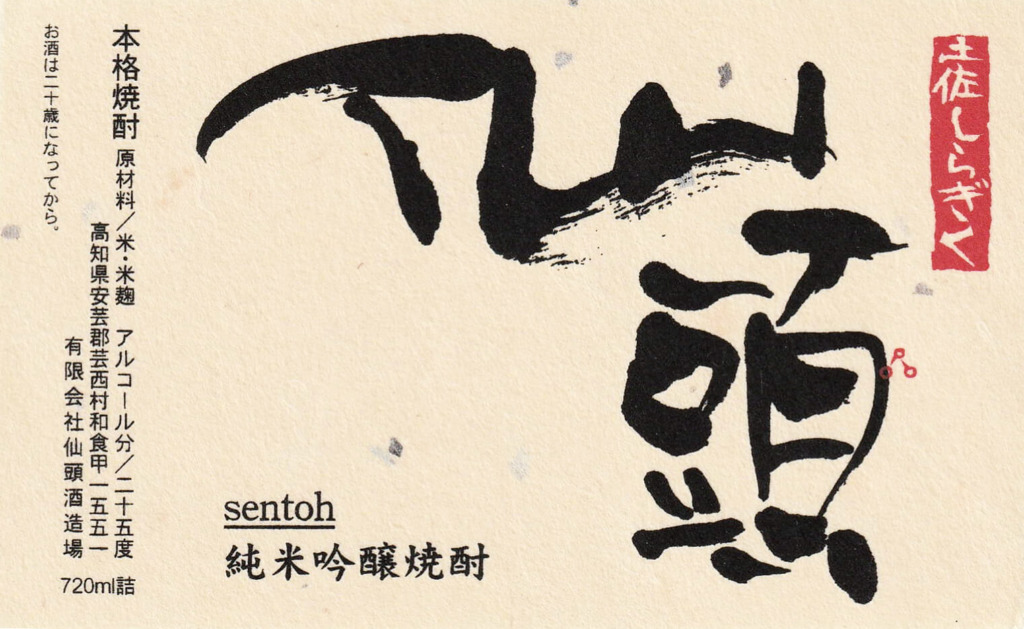 土佐しらぎく
仙頭
sentoh
純米吟醸焼酎
本格焼酎 原材料／米・米麹 アルコール分／二十五度
高知県安芸郡芸西村和食甲一五五一
有限会社仙頭酒造場
お酒は二十歳になってから。
720ml詰